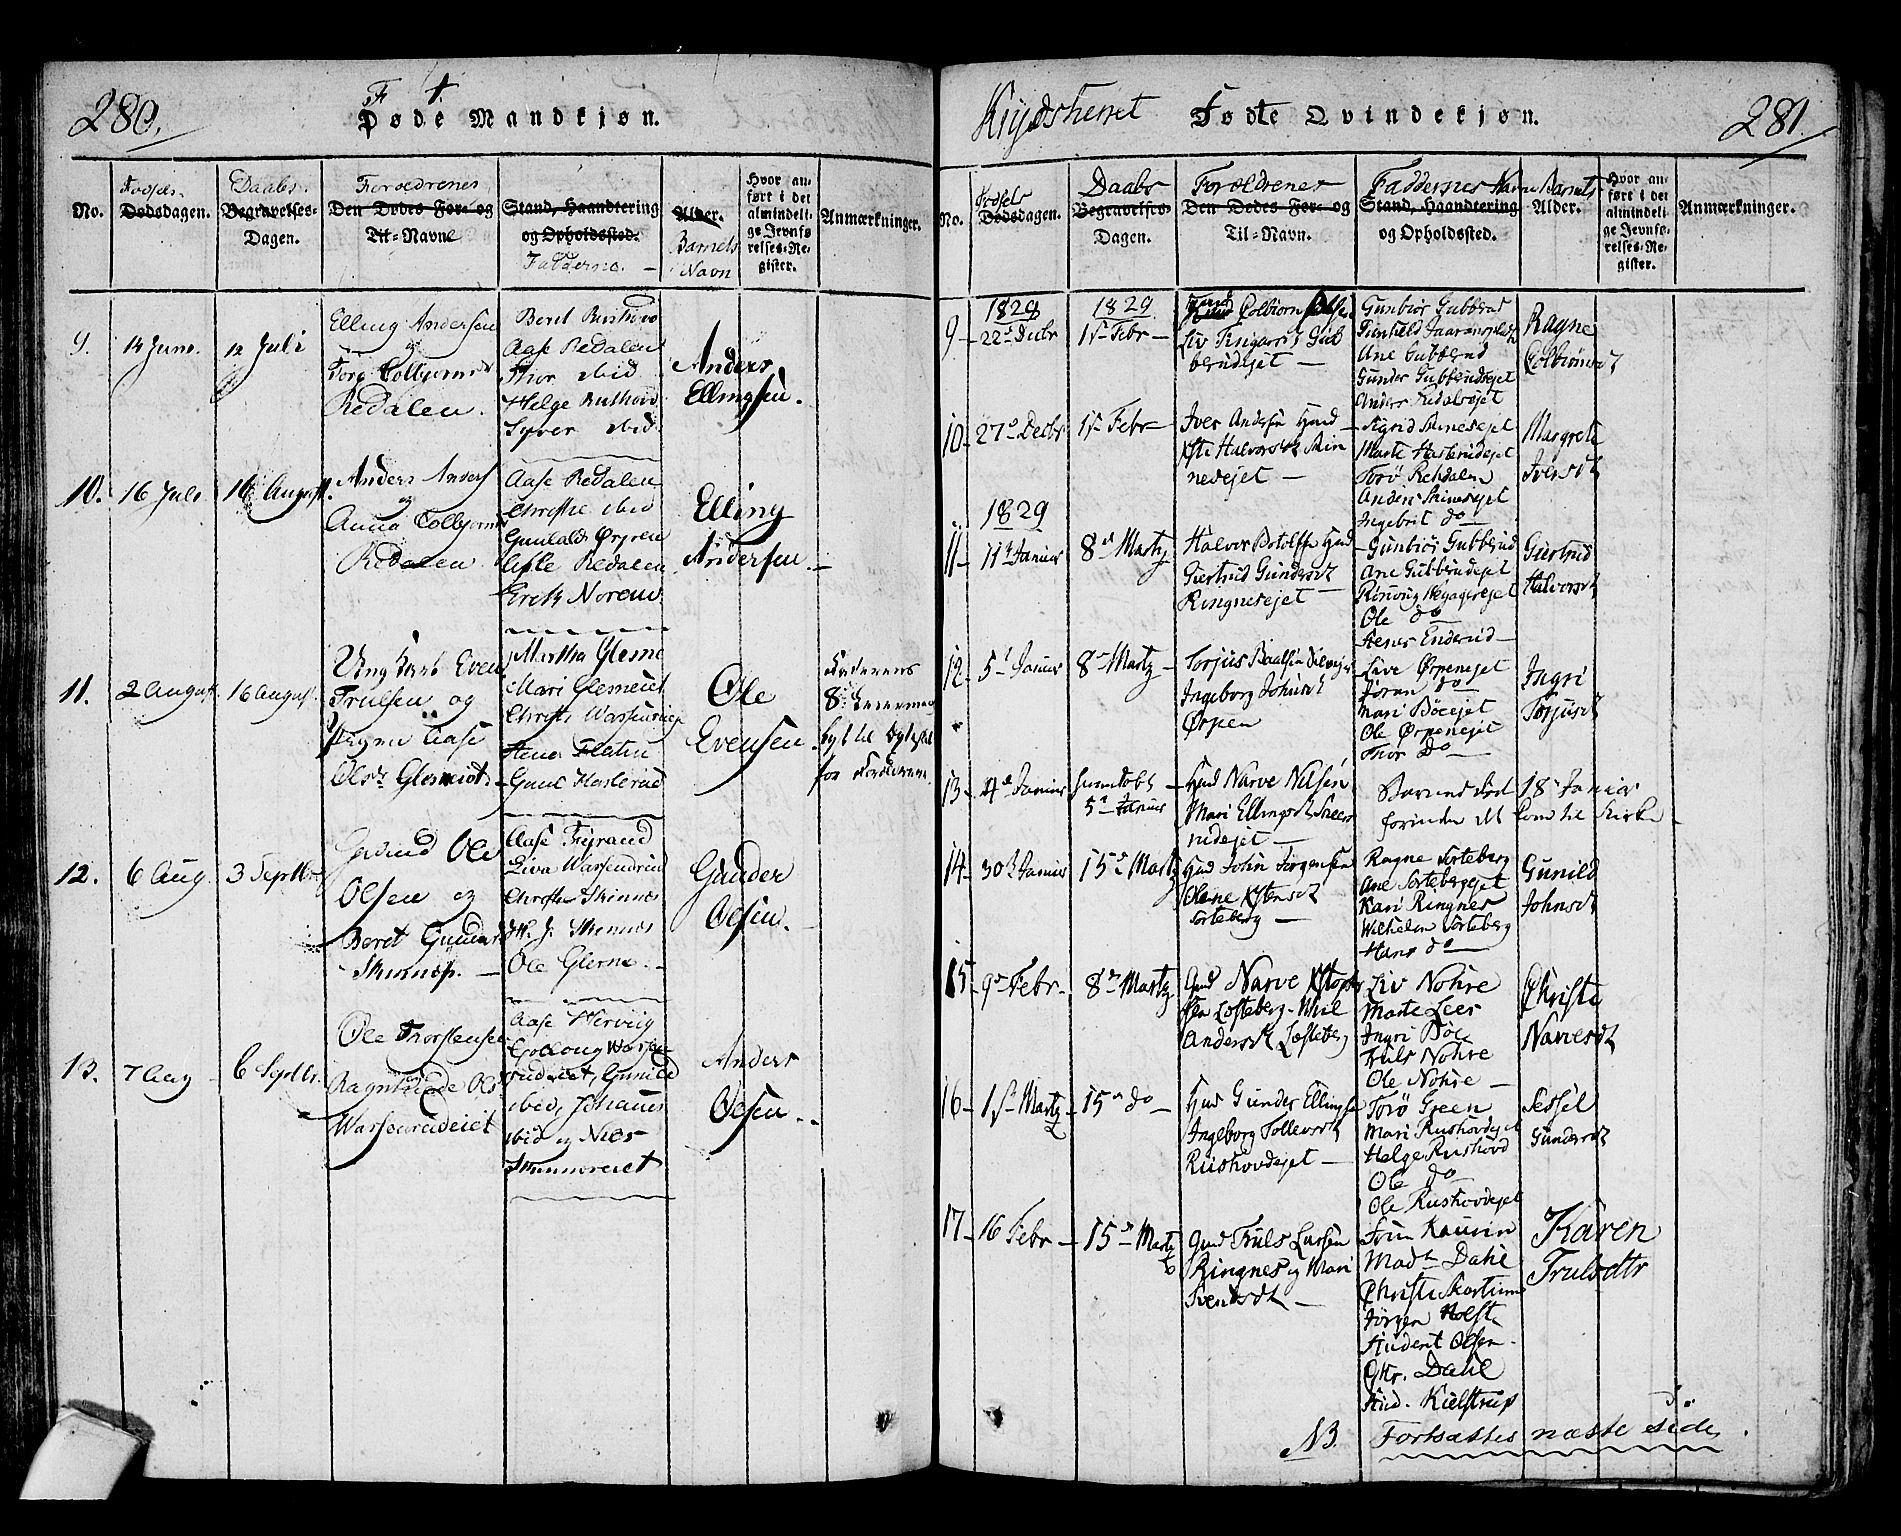 280.
Føde Mandkjøn.
No.
Fødsels-
Dødsdagen.
Daabs-
Begravelses-
Dagen.
Forældrenes
Den Dødes For- og
Til-Navne
Stand, Haandtering
og Opholdssted.
Fadderne.
Alder.
Barnets
Navn
Hvor an-
ført i det
almindeli-
ge Jevnfø-
relses-Re-
gister.
Anmærkninger.
9.
14 Juni.
12 Juli
Elling Andersen
og
Torø Colbjørnsd
Redalen.
Beret Rushovd
Aase Redalen
Thor ibid
Helge Rushovd
Syver ibid
Anders
Ellingsen.
10.
16 Juli
16 August.
Anders Anders
og
Anna Colbjørns
Redalen
Aase Redalen
Christie ibid
Gunild Ørpen
Redalen
Erik Noreno
Elling
Andersen.
11.
2 August.
16 August.
Ung Karl Even
Trulsen og
Pigen Aase
Olsdr Glesneiet.
Martha Glesne
Mari Glesneiet
Christi Wassenrueie
Steen Flatin
Gunl Haslerud
Ole
Evensen
Faderens
8de Leiermaal
for Forældrene
12.
6 Aug.
3 Septbr
Gaardmd Ole
Olsen og
Beret Gunders
Skinnes.
Aase Frÿrand
Liva Wassendrud
Christie Skinnes
H. J. Skinnes
Ole Glesne.
Gunder
Olsen.
13.
7 Aug
6 Septbr.
Ole Thorstensen
Ragnhilde Ols
Wassenrudeiet
Aase Hervig
Gollaug Wassen
rudeiet, Gunild
ibid, Johannes
ibid og Niels
Skinnereiet
Anders
Olsen.
Krydsherret
Fødte Qvindekjøn.
281.
No.
Fødsels
Dødsdagen.
Daabs
Begravelses-
Dagen.
Forældrenes
Den Dødes For- og
Til-Navn.
Faddernes Navne
Stand, Haandtering
og Opholdssted.
Barnets
Alder.
Hvor an-
ført i det
almindeli-
ge Jevnfø-
relses-Re-
gister.
Anmærkninger.
1828
1829
9
22de Decbr
1ste Febr
Colbiørn
Liv Gub
berudejet
Gunbiør Gubberud
Gunild
Ane Gubberud
Gunder Gubberudejet
Anders Redalsejet
Ragne
Colbiørnsdt
10
27de Decbr
1ste Febr
Iver Andersen Husd
Xsti Halvorsdt Skin
nesejet
Sigrid Skinesejet
Marte Hasterudejet
Torø Rehdalen
Anders Skinesejet
Ingebrit do
Margrete
Iversdt
1829
11
11te Januar
8de Martz
Halvor Botolfsen Husd
Giertrud Gundersdt
Ringnesejet
Gunbiør Gubberud
Ane Gubberudejet
Rønnoug Heyagerejet
Ole do
Stener Enderud
Giertrud
Halvorsdt
12
5te Januar
8de Martz
Torjus Paalsen Selvejer
Ingeborg Johnsdt
Ørpen
Live Ørpenejet
Jøran do
Mari Bøeejet
Ole Ørpenejet
Thor do
Ingri
Torjusdt
13
4de Januar
hjemdøbt
5te Januar
Husd Narve Nilsen
Mari Ellingsdt Snees
rudejet
Barnet død 18de Januar
forinden det kom til Kirke
14
30te Januar
15de Martz
Husd John Jørgensen
Olene Xstensdt
Sorteberg
Ragne Sorteberg
Ane Sortebergejet
Kari Ringnes
Wilhelm Sorteberg
Hans do
Gunild
Johnsdt
15
9de Febr.
8de Martz
Gmd Narve Xstophers
sen Løsteberg
Andersdt Løsteberg
Liv Nohre
Marte Leer
Ingri Bøe
Truls Nohre
Ole Nohre
Christi
Narvesdt
16
1ste Martz
15de do
Husd Gunder Ellingsen
Ingeborg Tollevsdt
Rushovdejet
Torø Green
Mari Rushovdejet
Helge Rushovd
Ole do
Ole Rushovdejet
Sessel
Gundersdt
17
16 Febr
15de Martz
Gmd Truls Larsen
Ringnes og Mari
Svendsdt
Jom Kaurin
Madm Dahl
Christi
Jørgen Holst
Student Olsen
Chr. Dahl
Stud. Kielstrup
Karen
Trulsdtr
NB. Fortsættes næste side.